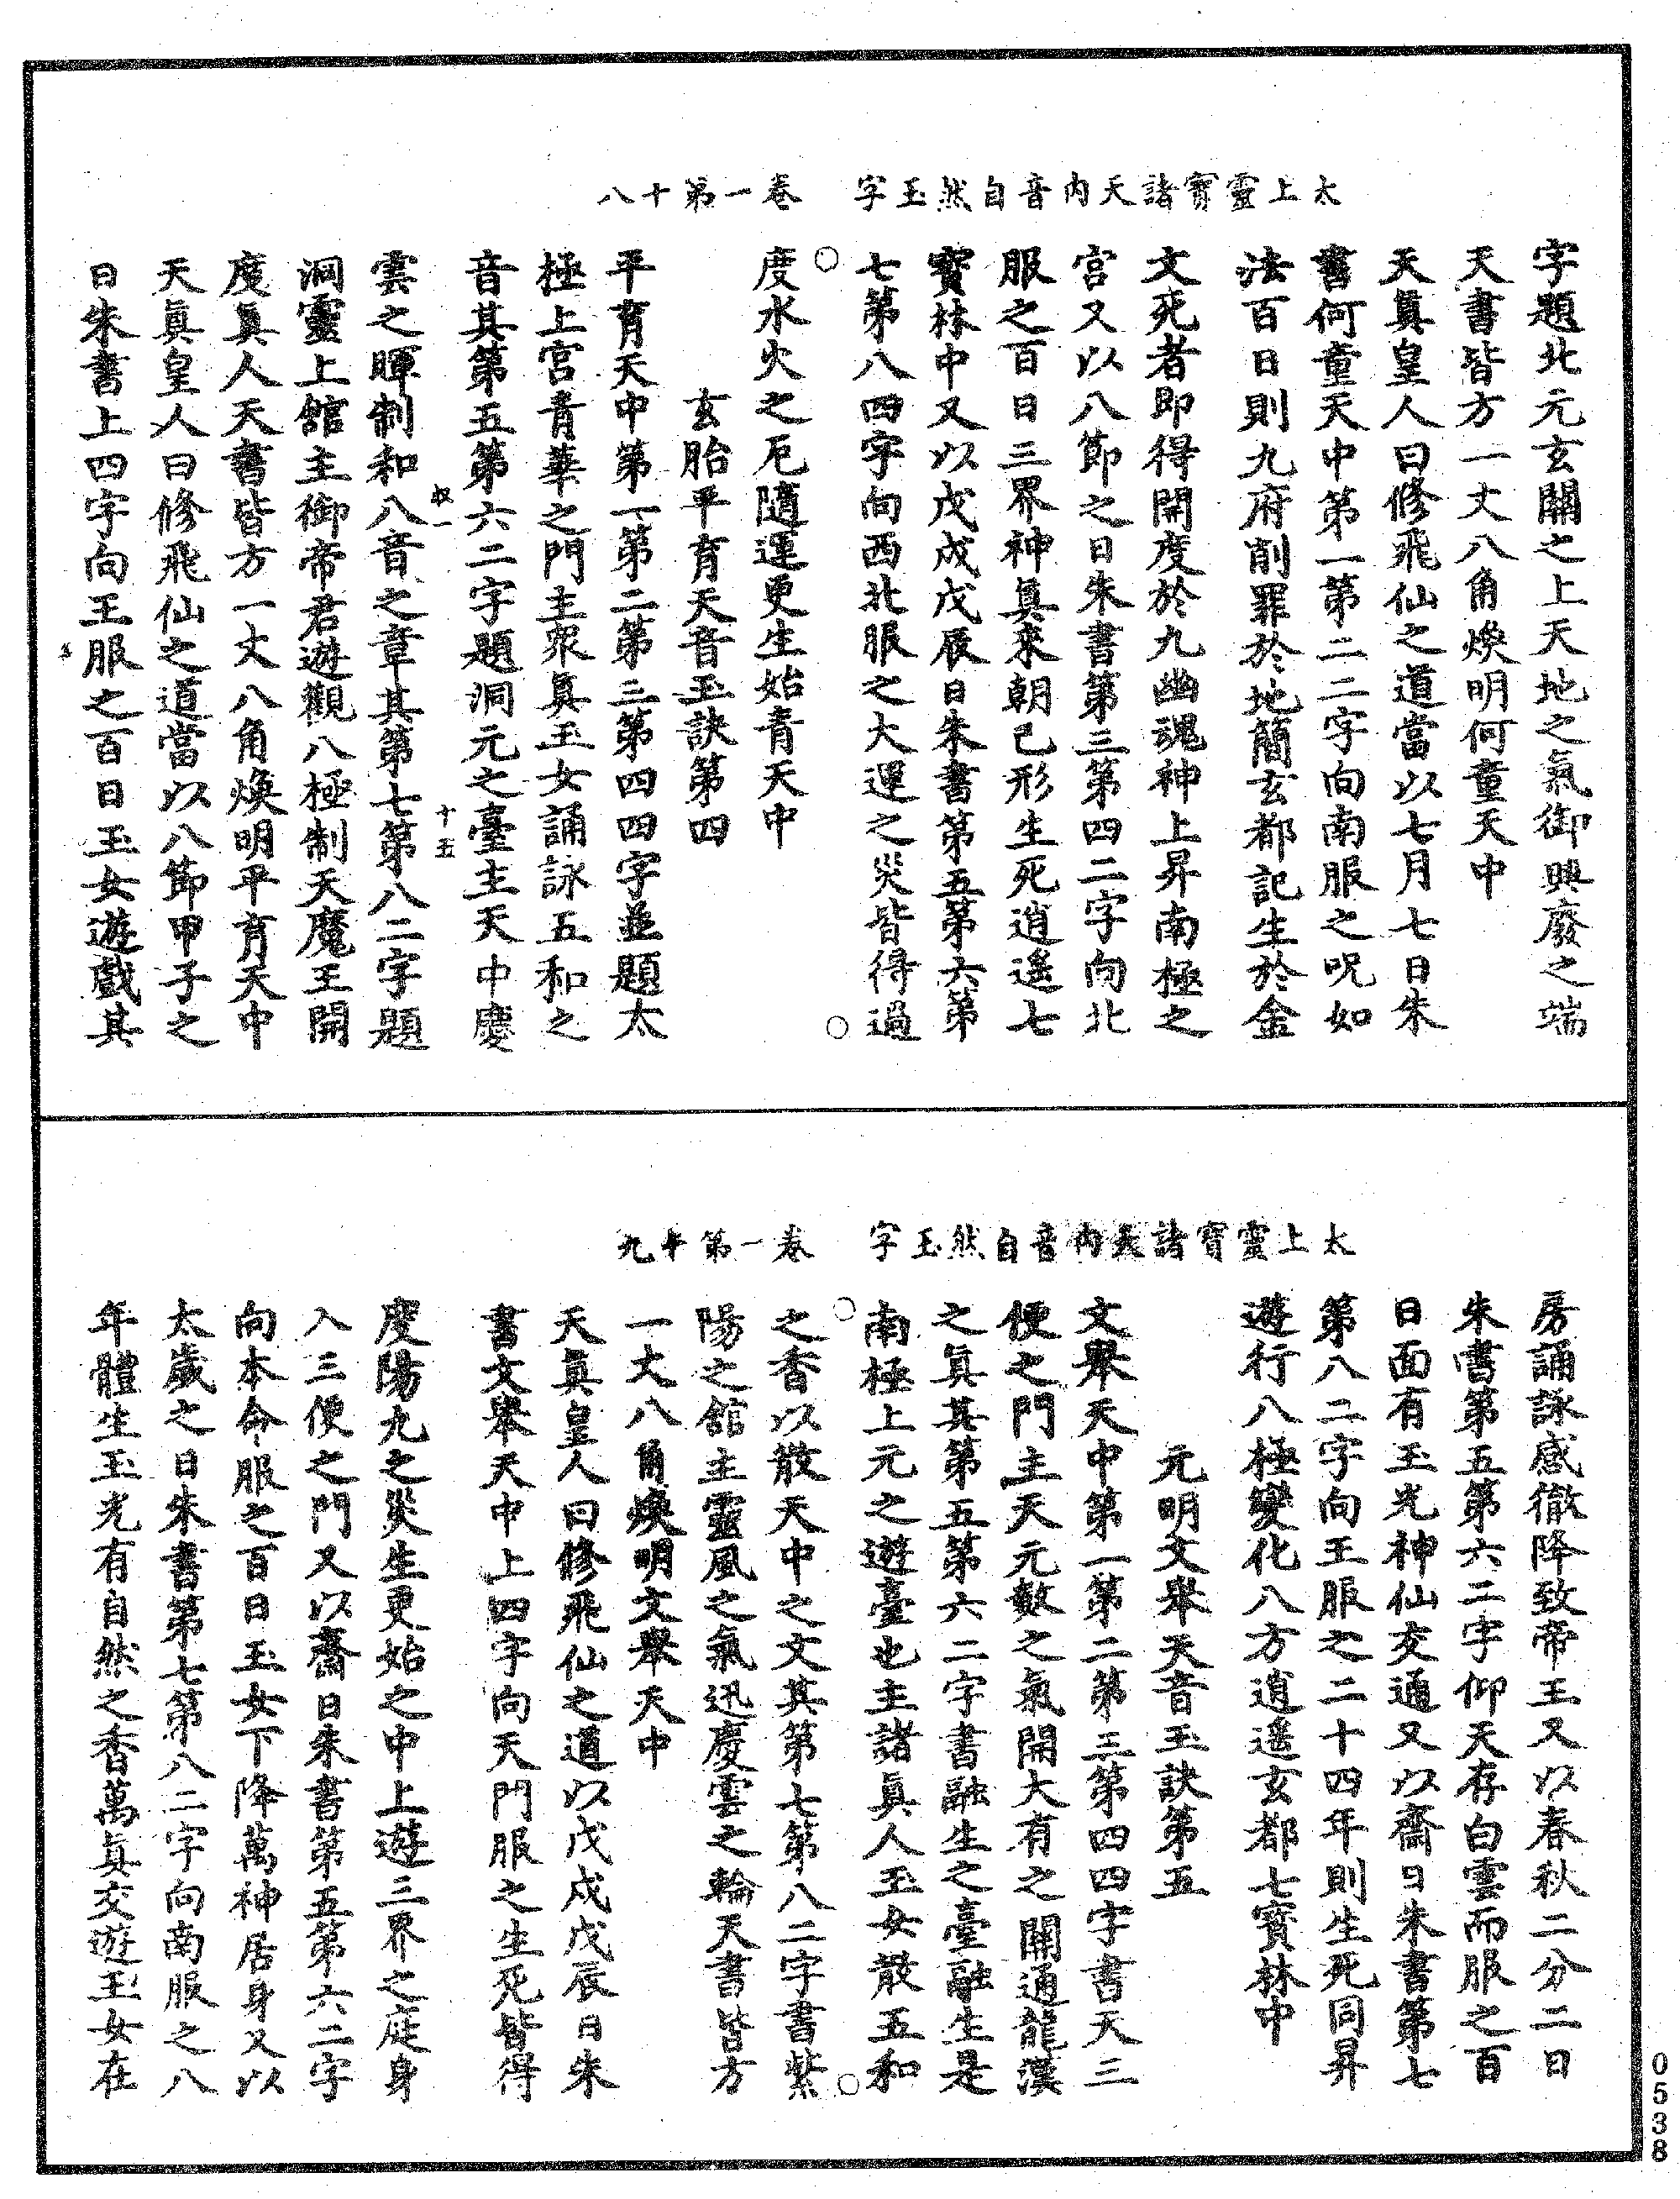 太上靈寶諸天內音自然玉字　卷一第十八
字題北元玄關之上天地之氣御興廢之端
天書皆方一丈八角煥明何童天中
天真皇人曰修飛仙之道當以七月七日朱
書何童天中第一第二二字向南服之呪如
法百日則九府削罪於地簡玄都記生於金
文死者即得開度於九幽魂神上昇南極之
宮又以八節之日朱書第三第四二字向北
服之百日三界神真來朝己形生死逍遙七
寶林中又以戊戌戊辰日朱書第五第六第
七第八四字向西北服之大運之災皆得過
度水火之厄隨運更生始青天中
玄胎平育天音玉訣第四
平育天中第一第二第三第四四字並題太
極上宮青華之門主眾真玉女誦詠五和之
音其第五第六二字題洞元之臺主天中慶
雲之暉制和八音之章其第七第八二字題
洞靈上館主御帝君遊觀八極制天魔王開
度真人天書皆方一丈八角煥明平育天中
天真皇人曰修飛仙之道當以八節甲子之
日朱書上四字向王服之百日玉女遊戲其
十五
太上靈寶諸天內音自然玉字　卷一第十九
房誦詠感徹降致帝王又以春秋二分二日
朱書第五第六二字仰天存白雲而服之百
日面有玉光神仙交通又以齋日朱書第七
第八二字向王服之二十四年則生死同昇
遊行八極變化八方逍遙玄都七寶林中
元明文舉天音玉訣第五
文舉天中第一第二第三第四四字書天三
便之門主天元數之氣開大有之關通龍漢
之真其第五第六二字書融生之臺融生是
南極上元之遊臺也主諸真人玉女散五和
之香以散天中之文其第七第八二字書紫
陽之館主靈風之氣迅慶雲之輪天書皆方
一丈八角煥明文舉天中
天真皇人曰修飛仙之道以戊戌戊辰日朱
書文舉天中上四字向天門服之生死皆得
度陽九之災生更始之中上遊三界之庭身
入三便之門又以齋日朱書第五第六二字
向本命服之百日玉女下降萬神居身又以
太歲之日朱書第七第八二字向南服之八
年體生玉光有自然之香萬真交遊玉女在
0538